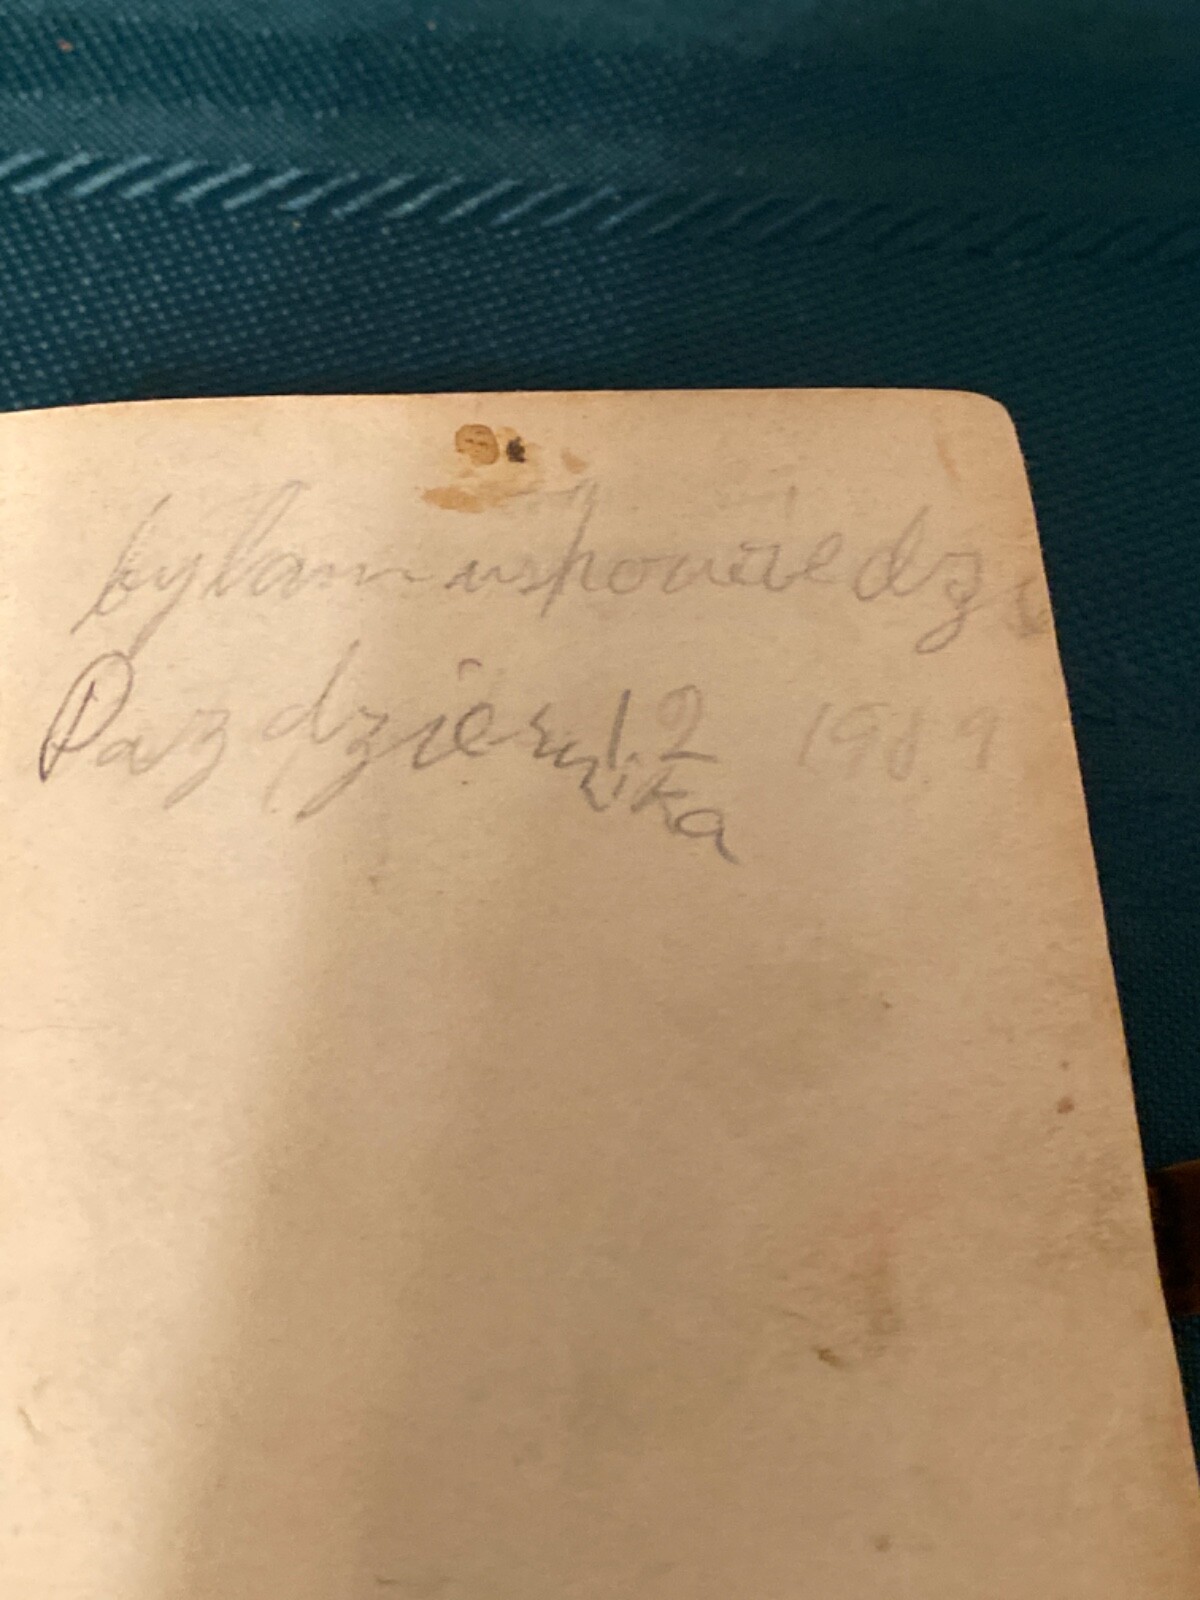 bylam uspowiedzi
Pazdziernika 12 1989